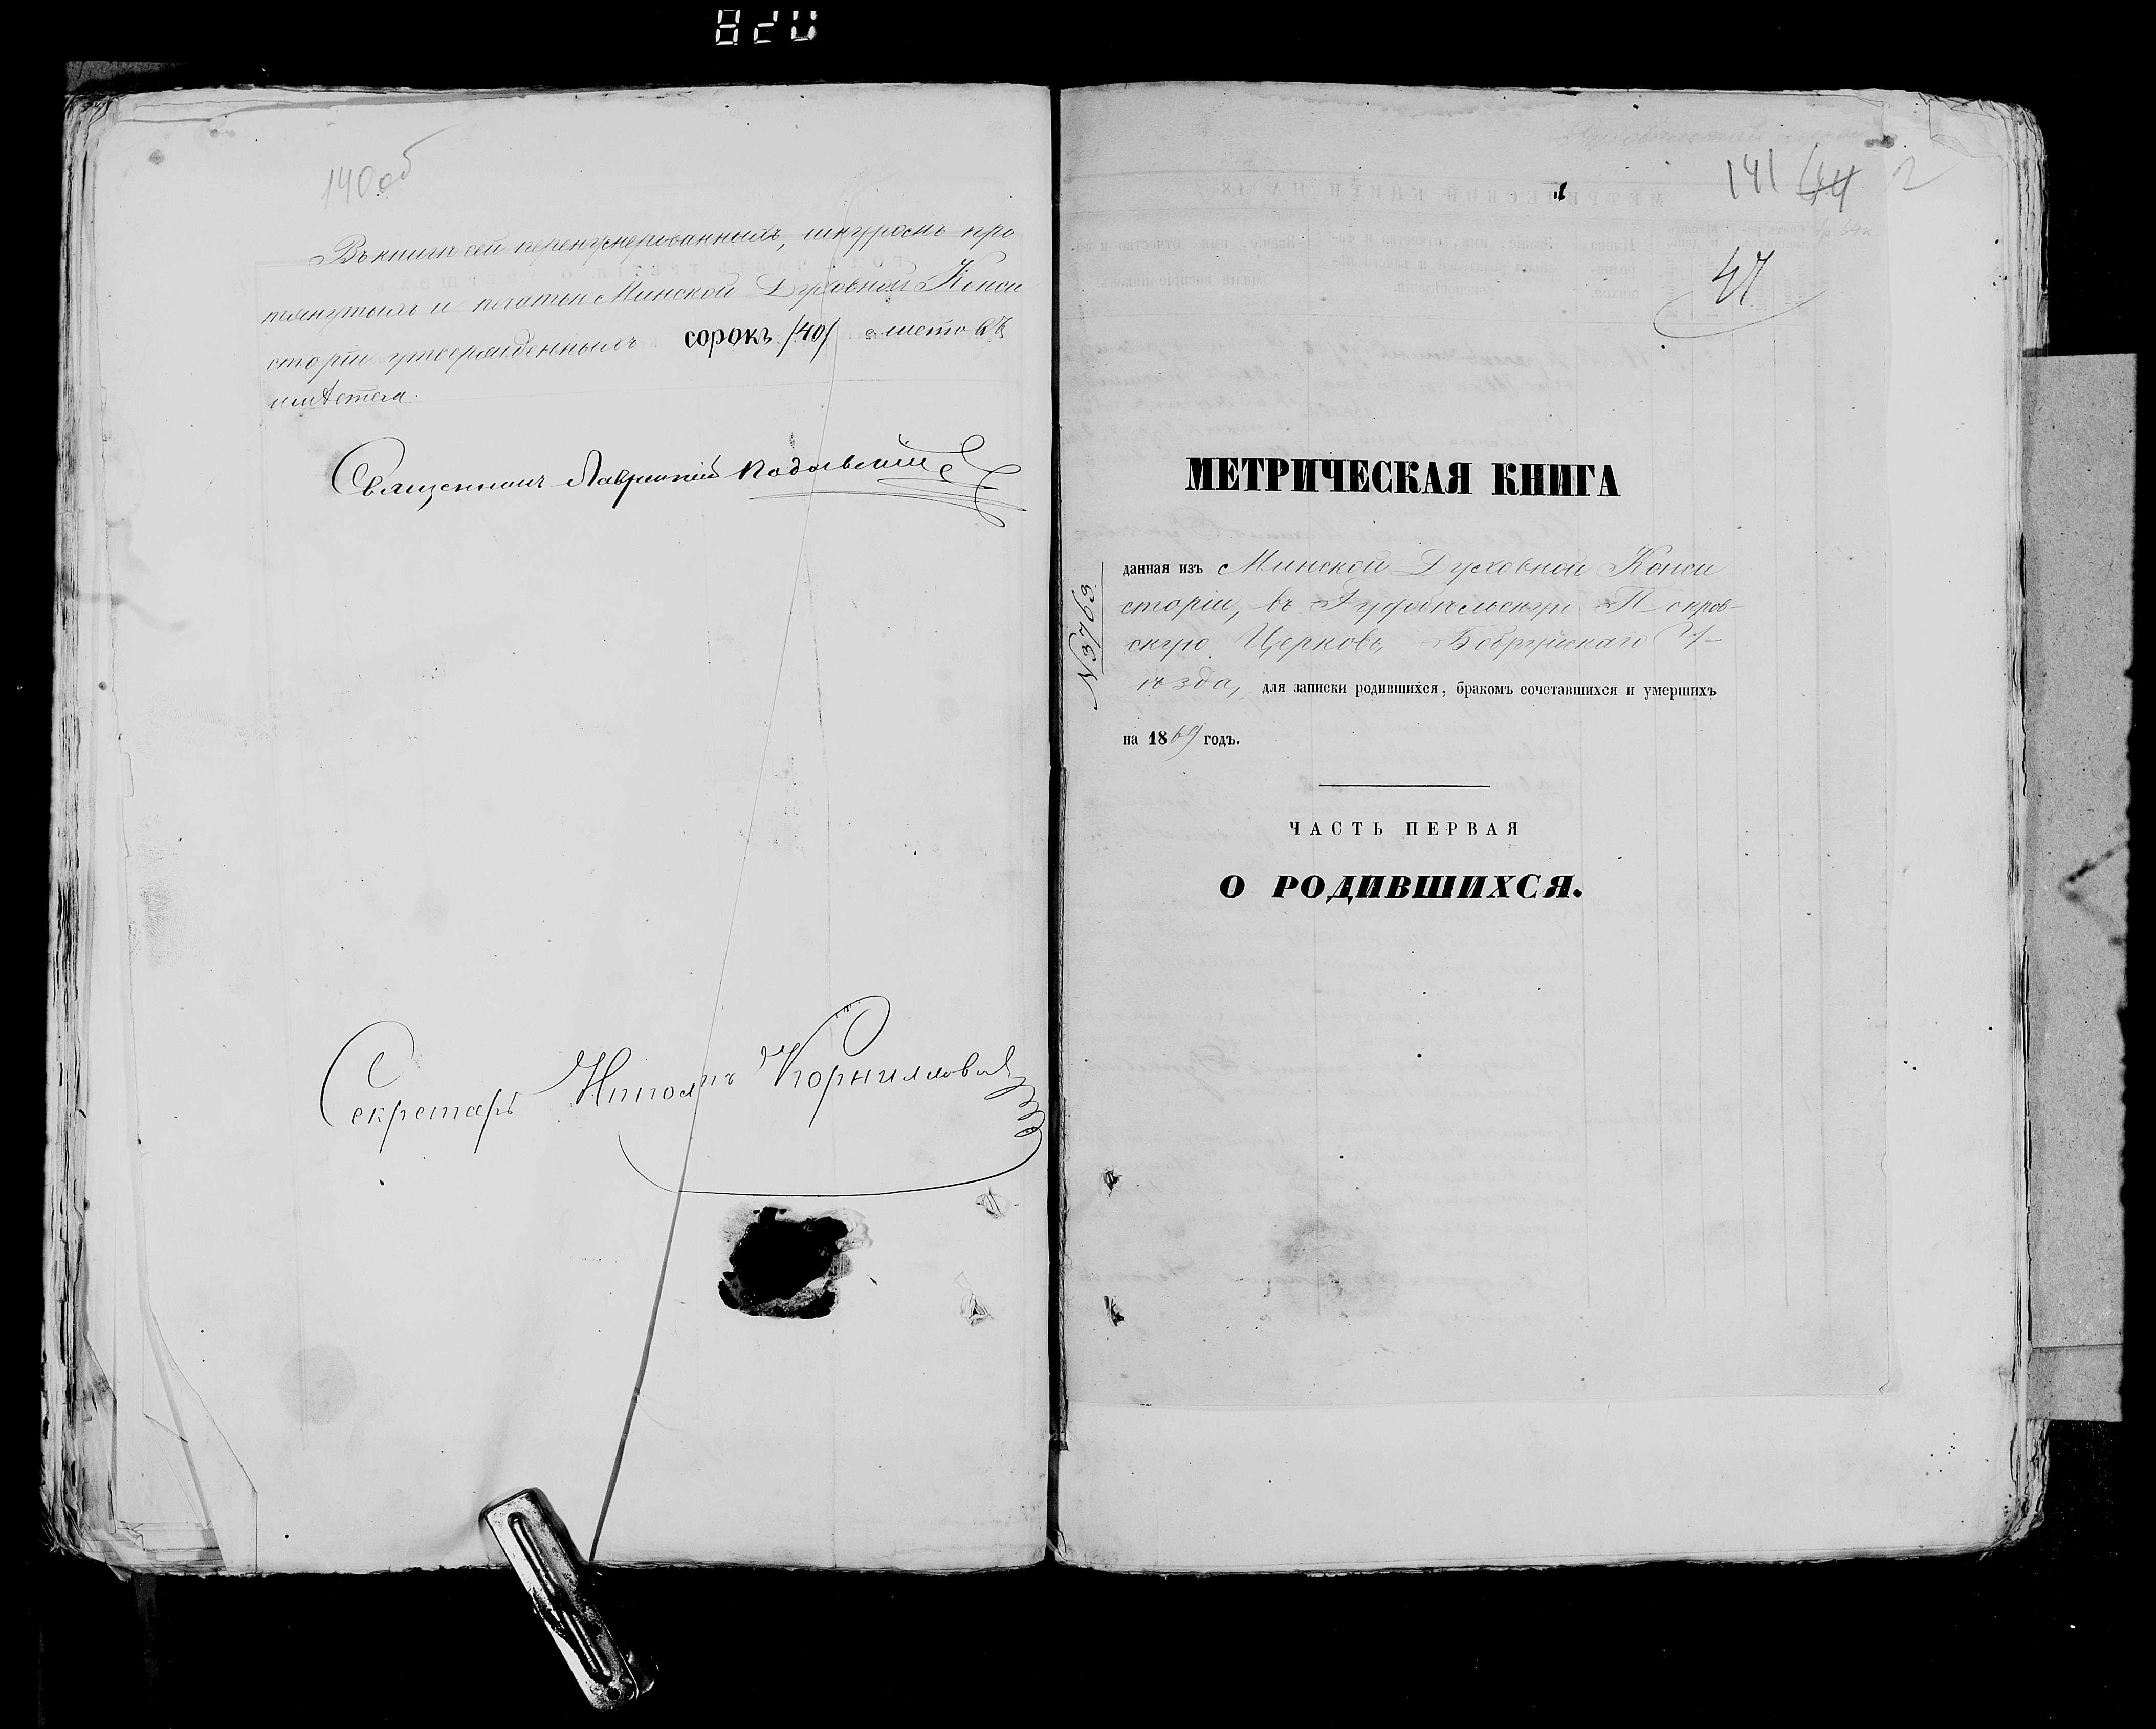 820
140 об
Въ книгѣ сей перенумерованныхъ, шнуромъ про
тянутыхъ и печатью Минской Духовной Конси
сторіи утвержденныхъ сорокъ /40/ листовъ
имѣется.
Священникъ Лаврентій
Секретарь Корниловичъ
141 64 2
41
МЕТРИЧЕСКАЯ КНИГА
№ 3763
данная изъ Минской Духовной Конси
сторіи, въ Покров-
скую Церковь, Бобруйскаго У-
ѣзда, для записки родившихся, бракомъ сочетавшихся и умершихъ
на 1869 годъ.
ЧАСТЬ ПЕРВАЯ
О РОДИВШИХСЯ.